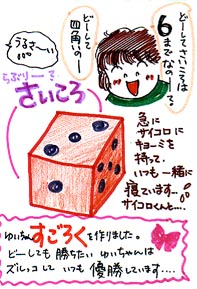 どーしてさいころは
6
までなのーっ?
どーして
四角いのー
うるさーい
らぶりーる
さいころ
急に
サイコロに
キョーミを
持って、
いつも一緒に
寝ています…
サイコロくんと…。
ゆいちゃんすごろくを作りました。
どーしても勝ちたいゆいちゃんは
ズルッコしていつも優勝しています…。